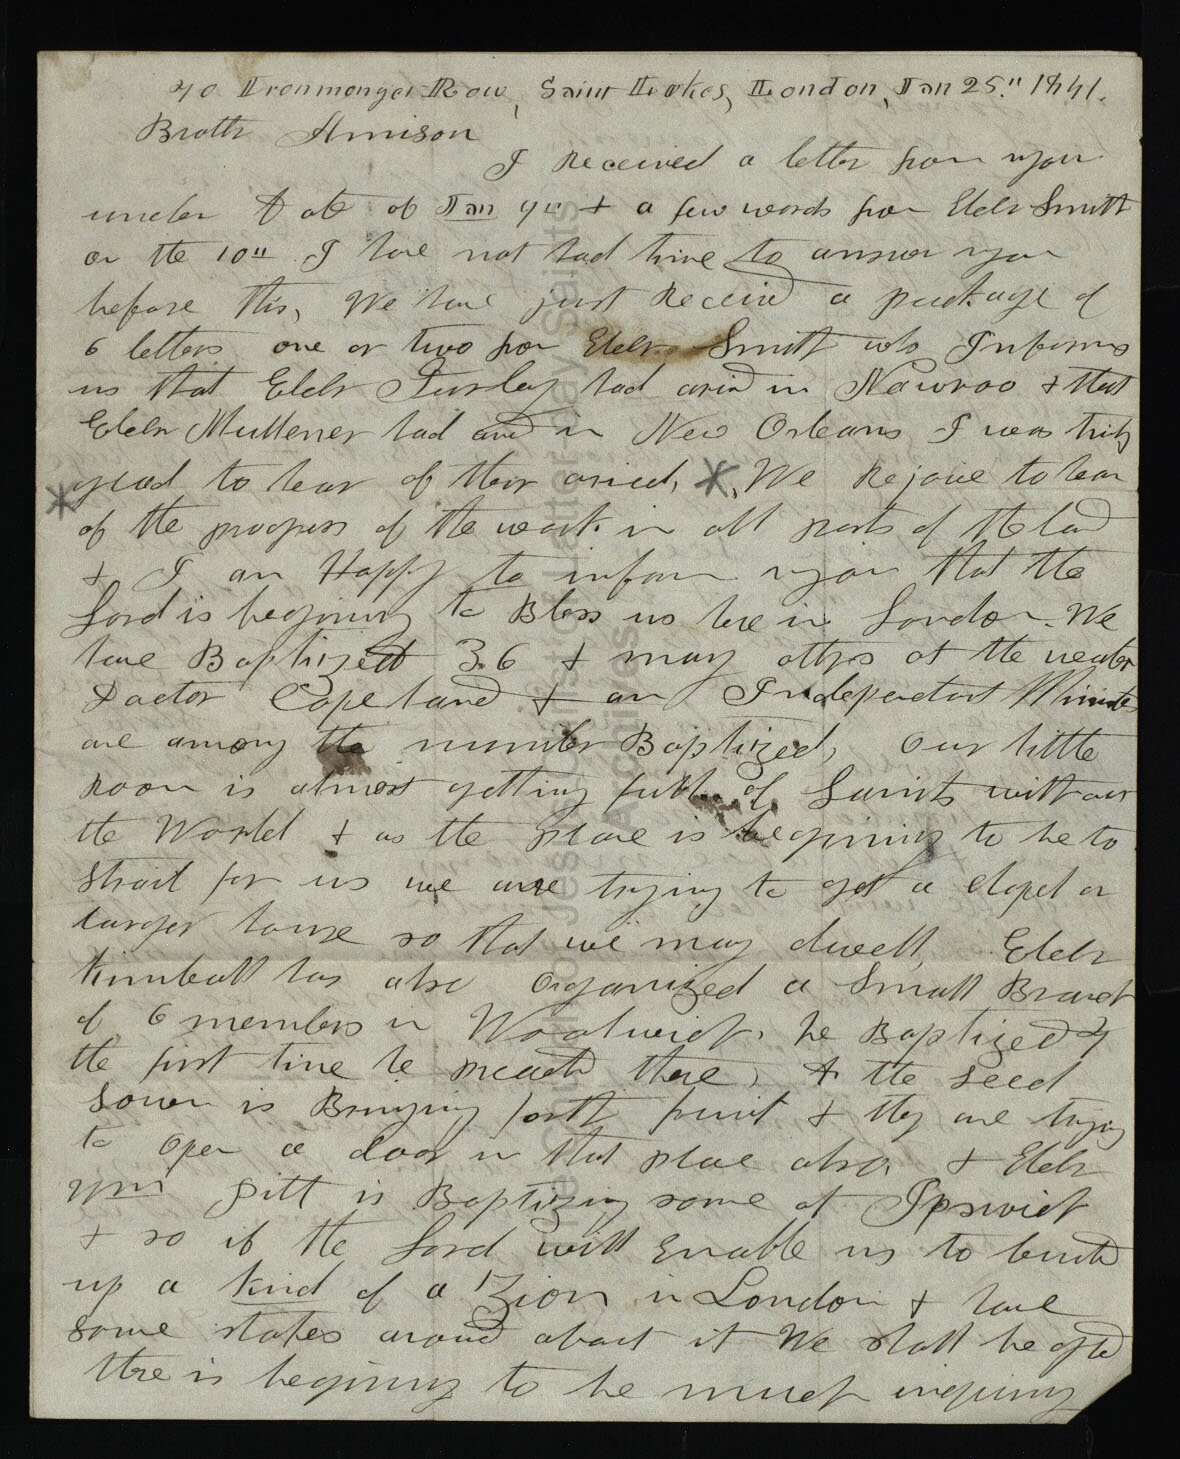 40 Ironmonger Row, Saint Lukes, London, Jan 25." 1841.
Brother Amison
I Received a letter from you
under date of Jan 9" & a few words from Elder Smith
on the 10" I have not had time to answer you
before this, We have just Received a package of
6 letters one or two from Elder Smith who Informs
us that Elder Turley had arived in Nawvoo & that
Elder Mulliner had arived in New Orleans I was truly
glad to hear of their arival, We Rejoice to hear
of the progress of the work in all parts of the land
& I am Happy to inform you that the
Lord is begining to Bless us here in London. We
have Baptized 36 & many others at the water
Doctor Copeland & an Independent Minister
are among the number Baptized, our little
Room is almost getting full of Saints without
the World & as the place is begining to be to
strait for us we are trying to get a chapel or
larger house so that we may dwell, Elder
Kimball has also organized a Small Branch
of 6 members in Woolwich, he Baptized 4
the first time he preached there, & the seed
Sown is Bringing forth fruit & they are trying
to open a door in that place also & Elder
Wm Pitt is Baptizing some at Ipswich
& so if the Lord will Enable us to build
up a Kind of a Zion in London & have
some stakes around about it We shall be glad
there is begining to be much inquiry
The Church of Jesus Christ of Latter-day Saints
Archives